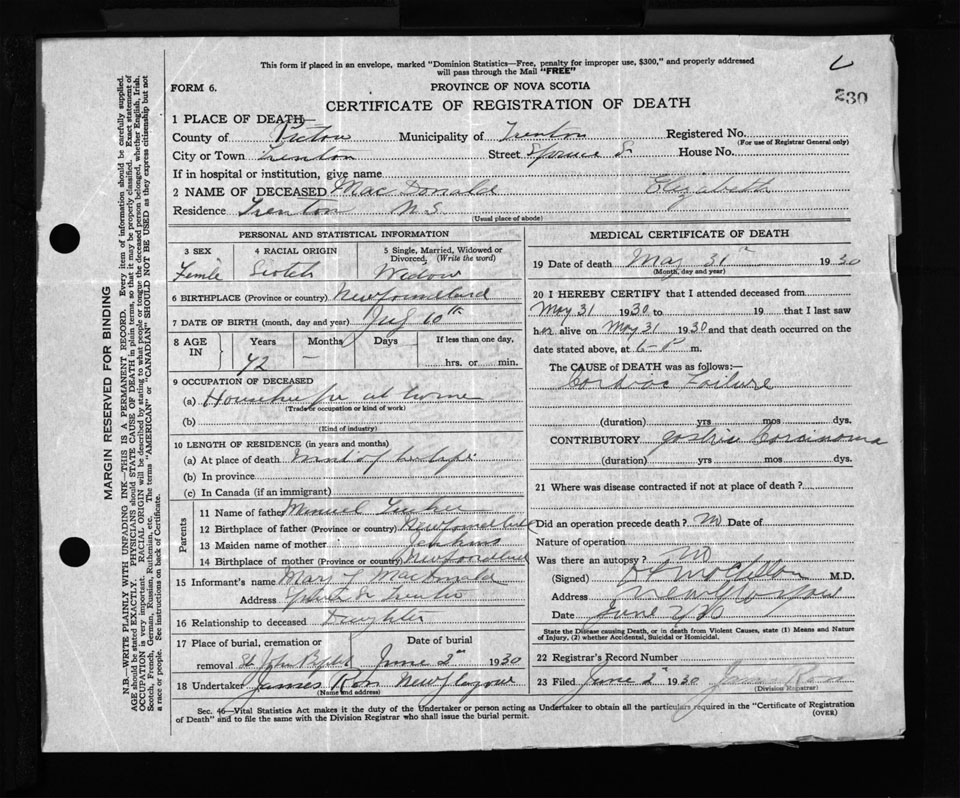 This form if placed in an envelope, marked "Dominion Statistics—Free, penalty for improper use, $300," and properly addressed
will pass through the Mail "FREE"
FORM 6. PROVINCE OF NOVA SCOTIA 230
CERTIFICATE OF REGISTRATION OF DEATH
1 PLACE OF DEATH—
County of Pictou Municipality of Trenton Registered No.
(For use of Registrar General only)
City or Town Trenton Street Spruce S. House No.
If in hospital or institution, give name
2 NAME OF DECEASED MacDonald Elizabeth
Residence Trenton N.S.
(Usual place of abode)
PERSONAL AND STATISTICAL INFORMATION
3 SEX 4 RACIAL ORIGIN 5 Single, Married, Widowed or
Divorced, (Write the word)
Femle Scotch Widow
6 BIRTHPLACE (Province or country) Newfoundland
7 DATE OF BIRTH (month, day and year) 10th
8 AGE IN Years Months Days If less than one day,
72 — hrs. or min.
9 OCCUPATION OF DECEASED
(a) at home
(Trade or occupation or kind of work)
(b)
(Kind of industry)
10 LENGTH OF RESIDENCE (in years and months)
(a) At place of death most of her life
(b) In province
(c) In Canada (if an immigrant)
Parents
11 Name of father
12 Birthplace of father (Province or country) Newfoundland
13 Maiden name of mother Jenkins
14 Birthplace of mother (Province or country) Newfoundland
15 Informant's name Mary MacDonald
Address Trenton
16 Relationship to deceased Daughter
17 Place of burial, cremation or Date of burial
removal St John June 2nd 1930
18 Undertaker James Ross New Glasgow
(Name and address)
MEDICAL CERTIFICATE OF DEATH
19 Date of death May 31st 1930
(Month, day and year)
20 I HEREBY CERTIFY that I attended deceased from
May 31 1930 to 19 that I last saw
her alive on May 31 1930 and that death occurred on
date stated above, at 6-P m.
The CAUSE of DEATH was as follows:—
Cardiac Failure
(duration) yrs mos dys.
CONTRIBUTORY Gastric Carcinoma
(duration) yrs mos dys.
21 Where was disease contracted if not at place of death?
Did an operation precede death? no Date of
Nature of operation
Was there an autopsy? no
(Signed) M.D.
Address New Glasgow
Date June 2/30
State the Disease causing Death, or in death from Violent Causes, state (1) Means and Nature
of Injury, (2) whether Accidental, Suicidal or Homicidal.
22 Registrar's Record Number
23 Filed June 2 1930 James Ross
(Division Registrar)
Sec. 46—Vital Statistics Act makes it the duty of the Undertaker or person acting as Undertaker to obtain all the particulars required in the "Certificate of Registration
of Death" and to file the same with the Division Registrar who shall issue the burial permit. (OVER)
MARGIN RESERVED FOR BINDING
N.B.—WRITE PLAINLY WITH UNFADING INK—THIS IS A PERMANENT RECORD. Every item of information should be carefully supplied.
AGE should be stated EXACTLY. PHYSICIANS should STATE CAUSE OF DEATH in plain terms, so that it may be properly classified. Exact statement of
OCCUPATION is very important. RACIAL ORIGIN will be described by stating to what people or tongue the deceased person belonged, whether English, Irish,
Scotch, French, German, Russian, Ruthenian, etc. The terms "AMERICAN" or "CANADIAN" SHOULD NOT BE USED as they express citizenship but not
a race or people. See instructions on back of Certificate.